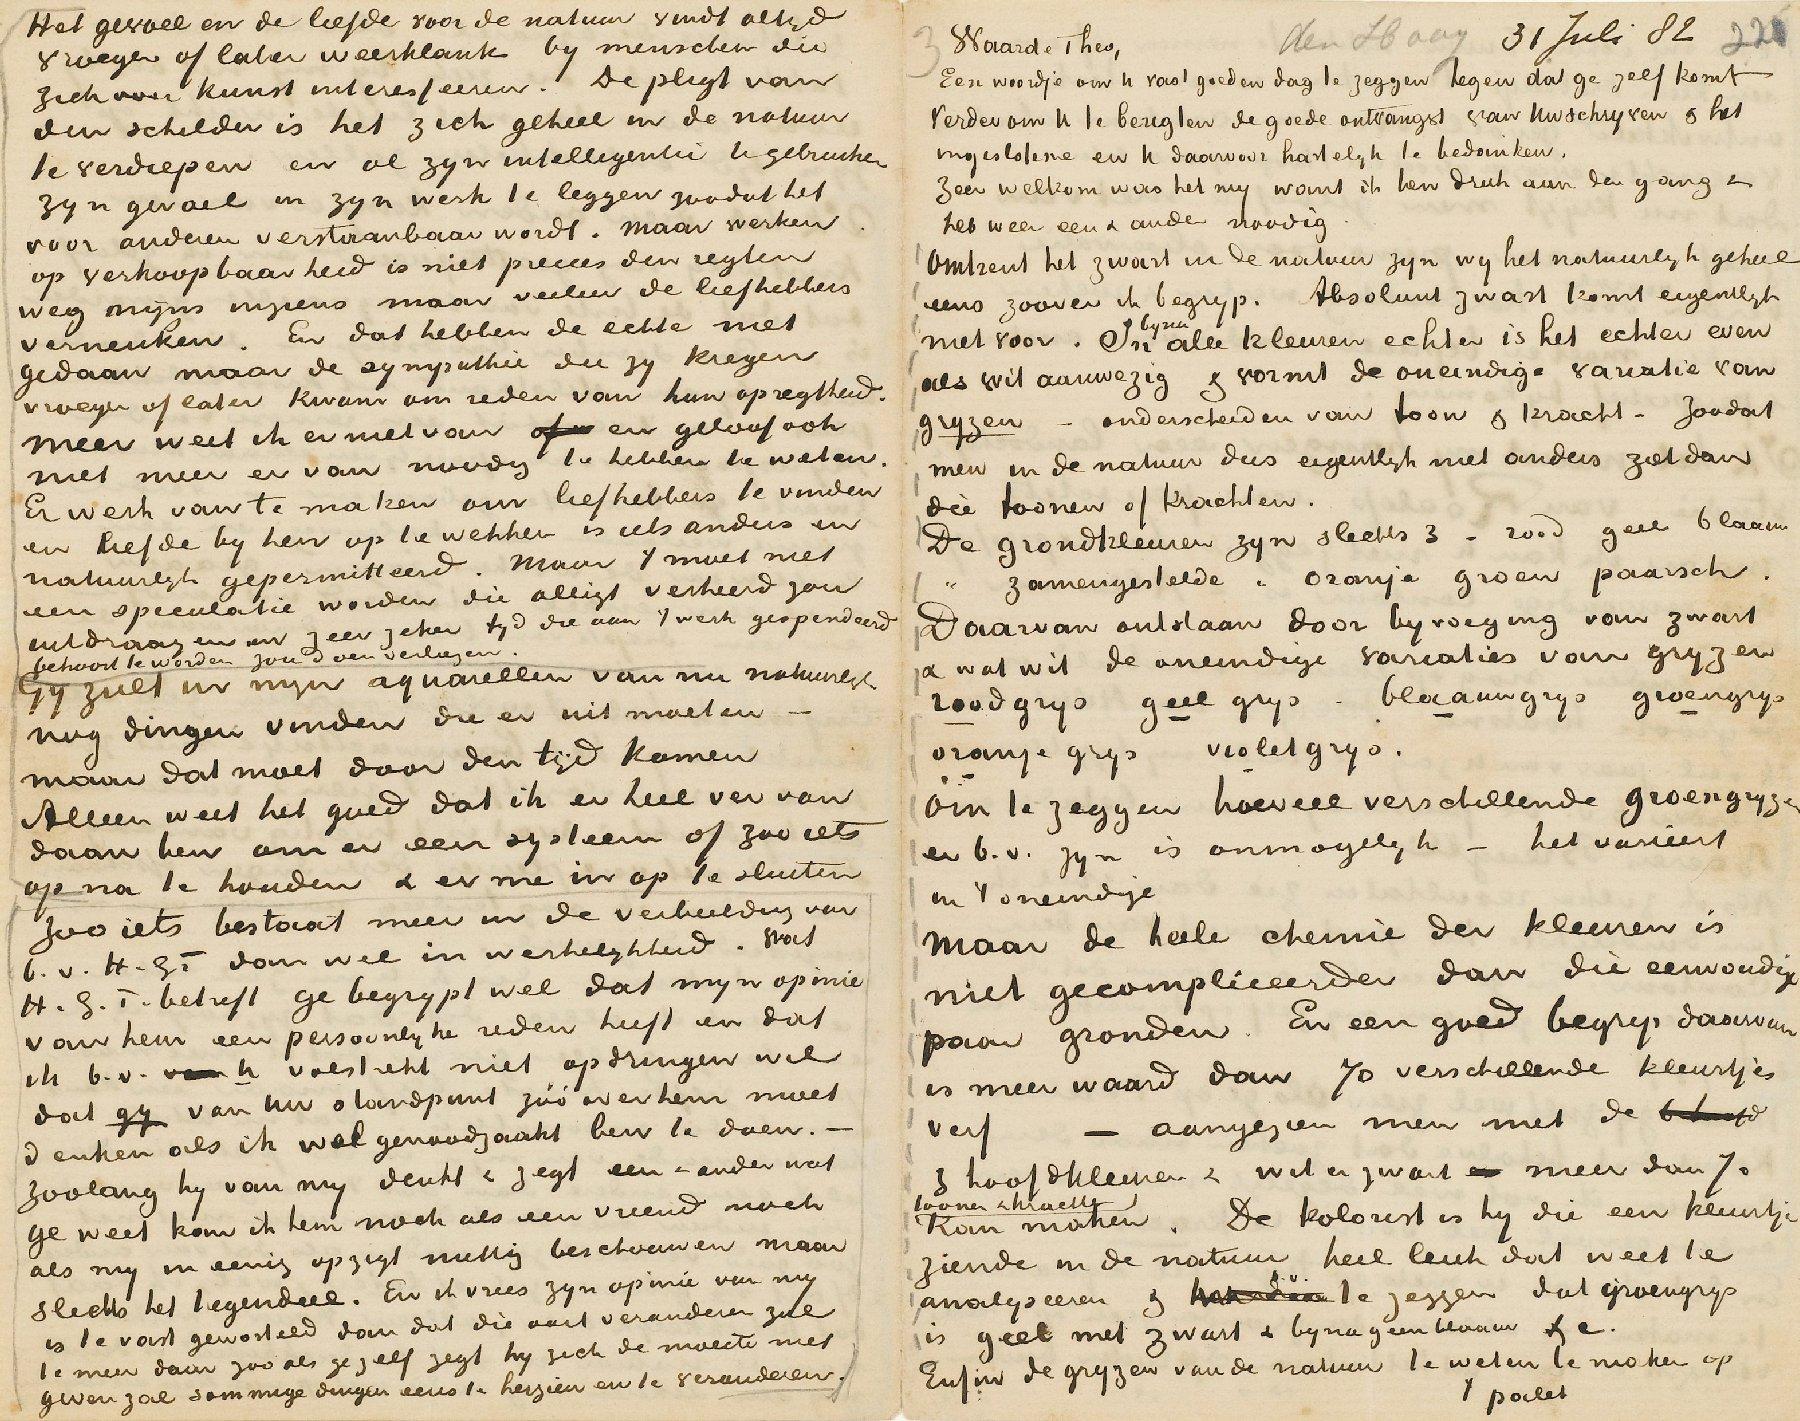 Het gevoel en de liefde voor de natuur vindt altijd
vroeger of later weerklank by menschen die
zich voor kunst interesseeren. De pligt van
den schilder is het zich geheel in de natuur
te verdiepen en al zyn intelligentie te gebruiken
zyn gevoel in zyn werk te leggen zoodat het
voor anderen verstaanbaar wordt. Maar werken
op verkoopbaarheid is niet precies den regten
weg myns inziens maar veeleer de liefhebbers
verneuken. En dat hebben de echte niet
gedaan maar de sympathie die zy kregen
vroeger of later kwam om reden van hun opregtheid.
Meer weet ik er niet van en geloof ook
niet meer er van noodig te hebben te weten.
Er werk van te maken om liefhebbers te vinden
en liefde by hen op te wekken is iets anders en
natuurlyk gepermitteerd. Maar 't moet niet
een speculatie worden die alligt verkeerd zou
uitdraaijen en zeer zeker tyd die aan 't werk gespendeerd
behoort te worden zou doen verliezen.
Gy zult in myn aquarellen van nu natuurlyk
nog dingen vinden die er uit moeten –
maar dat moet door den tijd komen
Alleen weet het goed dat ik er heel ver van
daan ben om er een systeem of zoo iets
op na te houden & er me in op te sluiten
Zoo iets bestaat meer in de verbeelding van
b.v. H.G.T. dan wel in werkelykheid. Wat
H.G.T. betreft ge begrypt wel dat myn opinie
van hem een persoonlyke reden heeft en dat
ik b.v. u volstrekt niet opdringen wil
dat gy van uw standpunt zóó over hem moet
denken als ik wel genoodzaakt ben te doen. –
Zoolang hy van my denkt & zegt een & ander wat
ge weet kan ik hem noch als een vriend noch
als my in eenig opzigt nuttig beschouwen maar
slechts het tegendeel. En ik vrees zyn opinie van my
is te vast geworteld dan dat die ooit veranderen zal
te meer daar zoo als ge zelf zegt hy zich de moeite niet
geven zal sommige dingen eens te herzien en te veranderen.
den Haag 31 Juli 82
Waarde Theo,
Een woordje om u vast goeden dag te zeggen tegen dat ge zelf komt
Verder om u te berigten de goede ontvangst van uw schryven & het
ingeslotene en u daarvoor hartelyk te bedanken.
Zeer welkom was het my want ik ben druk aan den gang &
heb weer een & ander noodig.
Omtrent het zwart in de natuur zyn wy het natuurlyk geheel
eens zoover ik begryp. Absoluut zwart komt eigentlyk
niet voor. In byna alle kleuren echter is het echter even
als wit aanwezig & vormt de oneindige variatie van
gryzen – onderscheiden van toon & kracht – Zoodat
men in de natuur dus eigentlyk niet anders ziet dan
die toonen of krachten.
De grondkleuren zyn slechts 3 – rood geel blaauw
" zamengestelde " oranje groen paarsch.
Daarvan ontstaan door byvoeging van zwart
& wat wit de oneindige variaties van gryzen
roodgrys geelgrys – blaauwgrys groengrys
oranjegrys violetgrys.
Om te zeggen hoeveel verschillende groengryzen
er b.v. zyn is onmogelyk – het varieert
in 't oneindige
Maar de heele chemie der kleuren is
niet gecompliceerder dan die eenvoudige
paar gronden. En een goed begryp daarvan
is meer waard dan 70 verschillende kleurtjes
verf – aangezien men met de
3 hoofdkleuren & wit en zwart meer dan 70
toonen & krachten
kan maken. De kolorist is hy die een kleurtje
ziende in de natuur heel leuk dat weet te
analyseeren & te zeggen dat groengrys
is geel met zwart & byna geen blaauw &c.
Enfin de gryzen van de natuur te weten te maken op
't palet